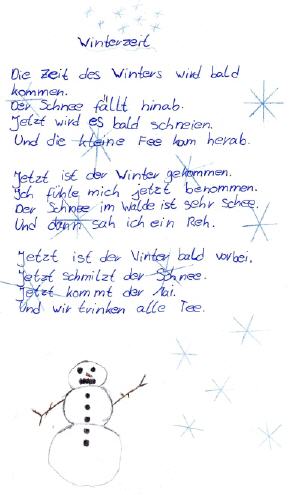 Winterzeit
Die Zeit des Winters wird bald
kommen.
Der Schnee fällt hinab.
Jetzt wird es bald schneien.
Und die kleine Fee kam herab.
Jetzt ist der Winter gekommen.
Ich fühle mich jetzt benommen.
Der Schnee im Walde ist sehr Schee.
Und dann sah ich ein Reh.
Jetzt ist der Winter bald vorbei.
Jetzt schmilzt der Schnee.
Jetzt kommt der Mai.
Und wir trinken alle Tee.